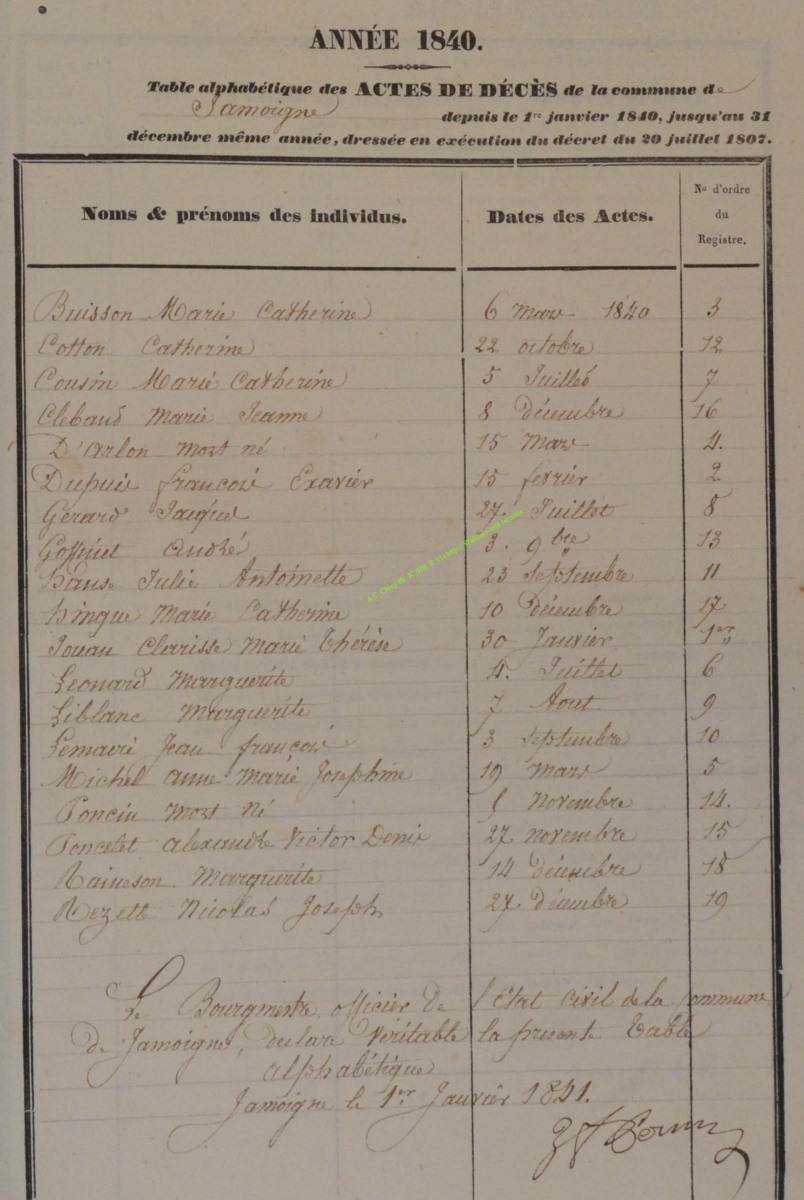 ANNÉE 1840.
Table alphabétique des ACTES DE DÉCÈS de la commune de
Jamoigne depuis le 1er janvier 1840, jusqu'au 31
décembre même année, dressée en exécution du décret du 20 juillet 1807.
Noms & prénoms des individus. Dates des Actes. No d'ordre du Registre.
Buisson Marie Catherine 6 mars 1840 3
Cotton Catherine 22 octobre 12
Cousin Marie Catherine 5 Juillet 7
Clebaud Marie Jeanne 8 décembre 16
D'Arlon mort né 15 Mars 4.
Dupuis françois Exavier 15 fevrier 2
Gerard Jacques 27. Juillet 8
Goffinet André 3. 9bre 13
Hanse Julie Antoinette 23 septembre 11
Hingue Marie Catherine 10 Décembre 17
Jouan Clarisse Marie Thérèse 30 Janvier 1er
Leonard Marguerite 4. Juillet 6
Liblanc Marguerite 7 Aout 9
Lemaire Jean françois 3 septembre 10
Michel anne Marie Josephine 19 Mars 5
Poncin mort né Novembre 14.
Poncelet alexandre Victor Denis 27 novembre 15
Raineson Marguerite 14 décembre 18
Rezett Nicolas Joseph 27 décembre 19
Le Bourgmestre officier de l'état civil de la commune
de Jamoigne, declare Veritable la presente Table
alphabétique
Jamoigne le 1er Janvier 1841.